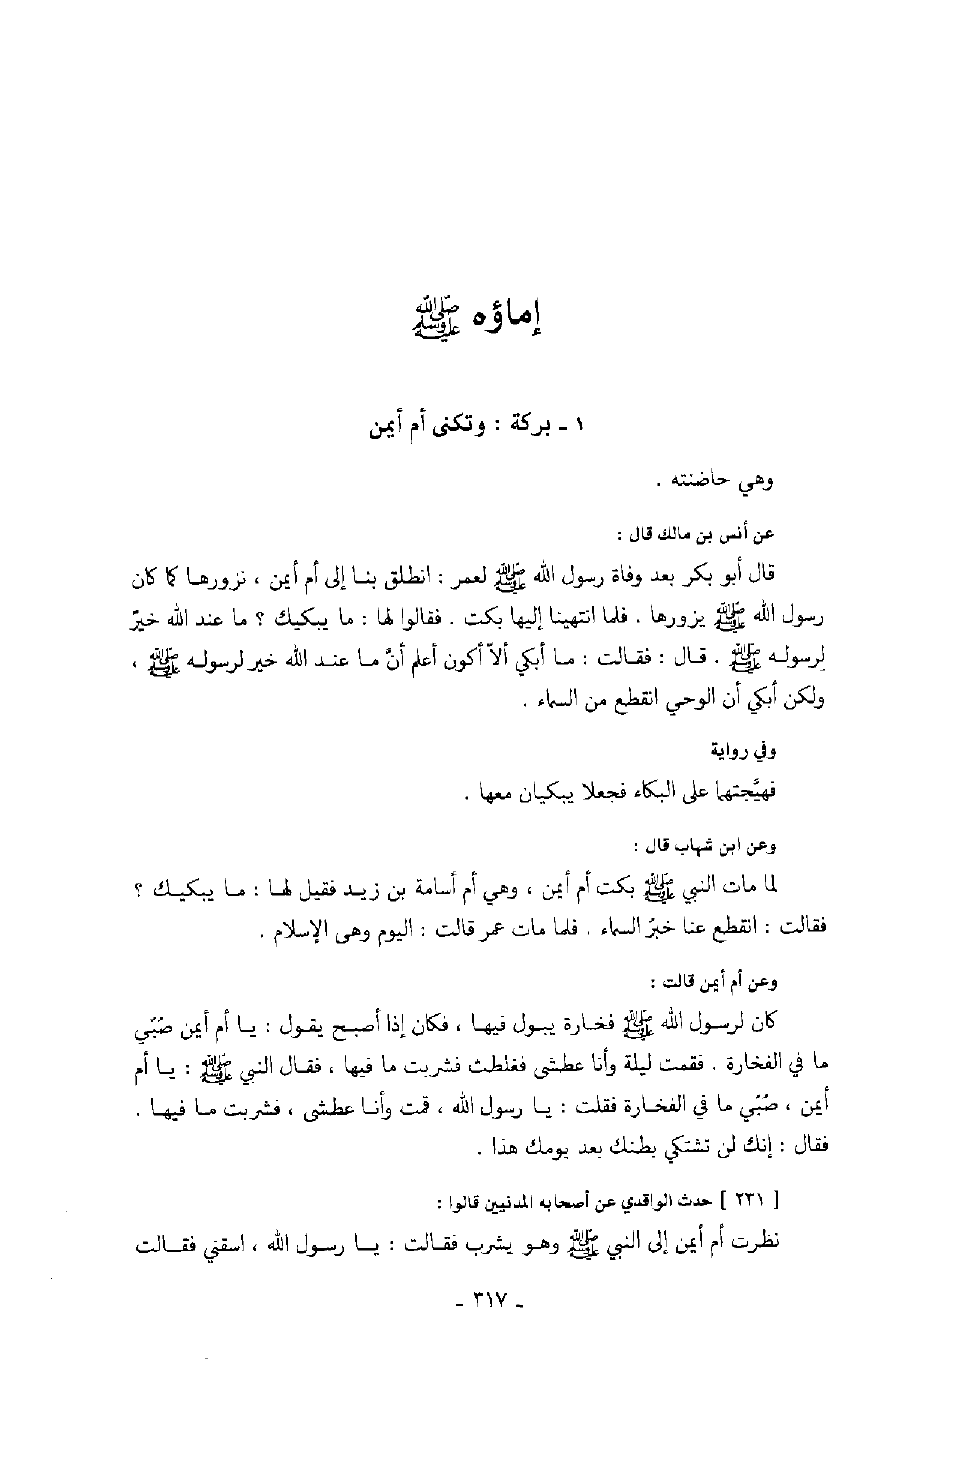 إماؤه ﷺ
١ - بركة : وتكنى أم أيمن
وهي حاضنته .
عن أنس بن مالك قال :
قال أبو بكر بعد وفاة رسول الله ﷺ لعمر : انطلق بنا إلى أم أيمن ، نزورها كما كان
رسول الله ﷺ يزورها . فلما انتهينا إليها بكت . فقالوا لها : ما يبكيك ؟ ما عند الله خيرٌ
لرسوله ﷺ . قال : فقالت : ما أبكي ألاّ أكون أعلم أنَّ ما عند الله خير لرسوله ﷺ ،
ولكن أبكي أن الوحي انقطع من السماء .
وفي رواية
فهيَّجتهما على البكاء فجعلا يبكيان معها .
وعن ابن شهاب قال :
لما مات النبي ﷺ بكت أم أيمن ، وهي أم أسامة بن زيد فقيل لها : ما يبكيك ؟
فقالت : انقطع عنا خبرُ السماء . فلما مات عمر قالت : اليوم وهى الإسلام .
وعن أم أيمن قالت :
كان لرسول الله ﷺ فخارة يبول فيها ، فكان إذا أصبح يقول : يا أم أيمن صُبّي
ما في الفخارة . فقمت ليلة وأنا عطشى فغلطت فشربت ما فيها ، فقال النبي ﷺ : يا أم
أيمن ، صُبّي ما في الفخارة فقلت : يا رسول الله ، قمت وأنا عطشى ، فشربت ما فيها .
فقال : إنك لن تشتكي بطنك بعد يومك هذا .
[ ٢٣١ ] حدث الواقدي عن أصحابه المدنيين قالوا :
نظرت أم أيمن إلى النبي ﷺ وهو يشرب فقالت : يا رسول الله ، اسقني فقالت
- ٣١٧ -